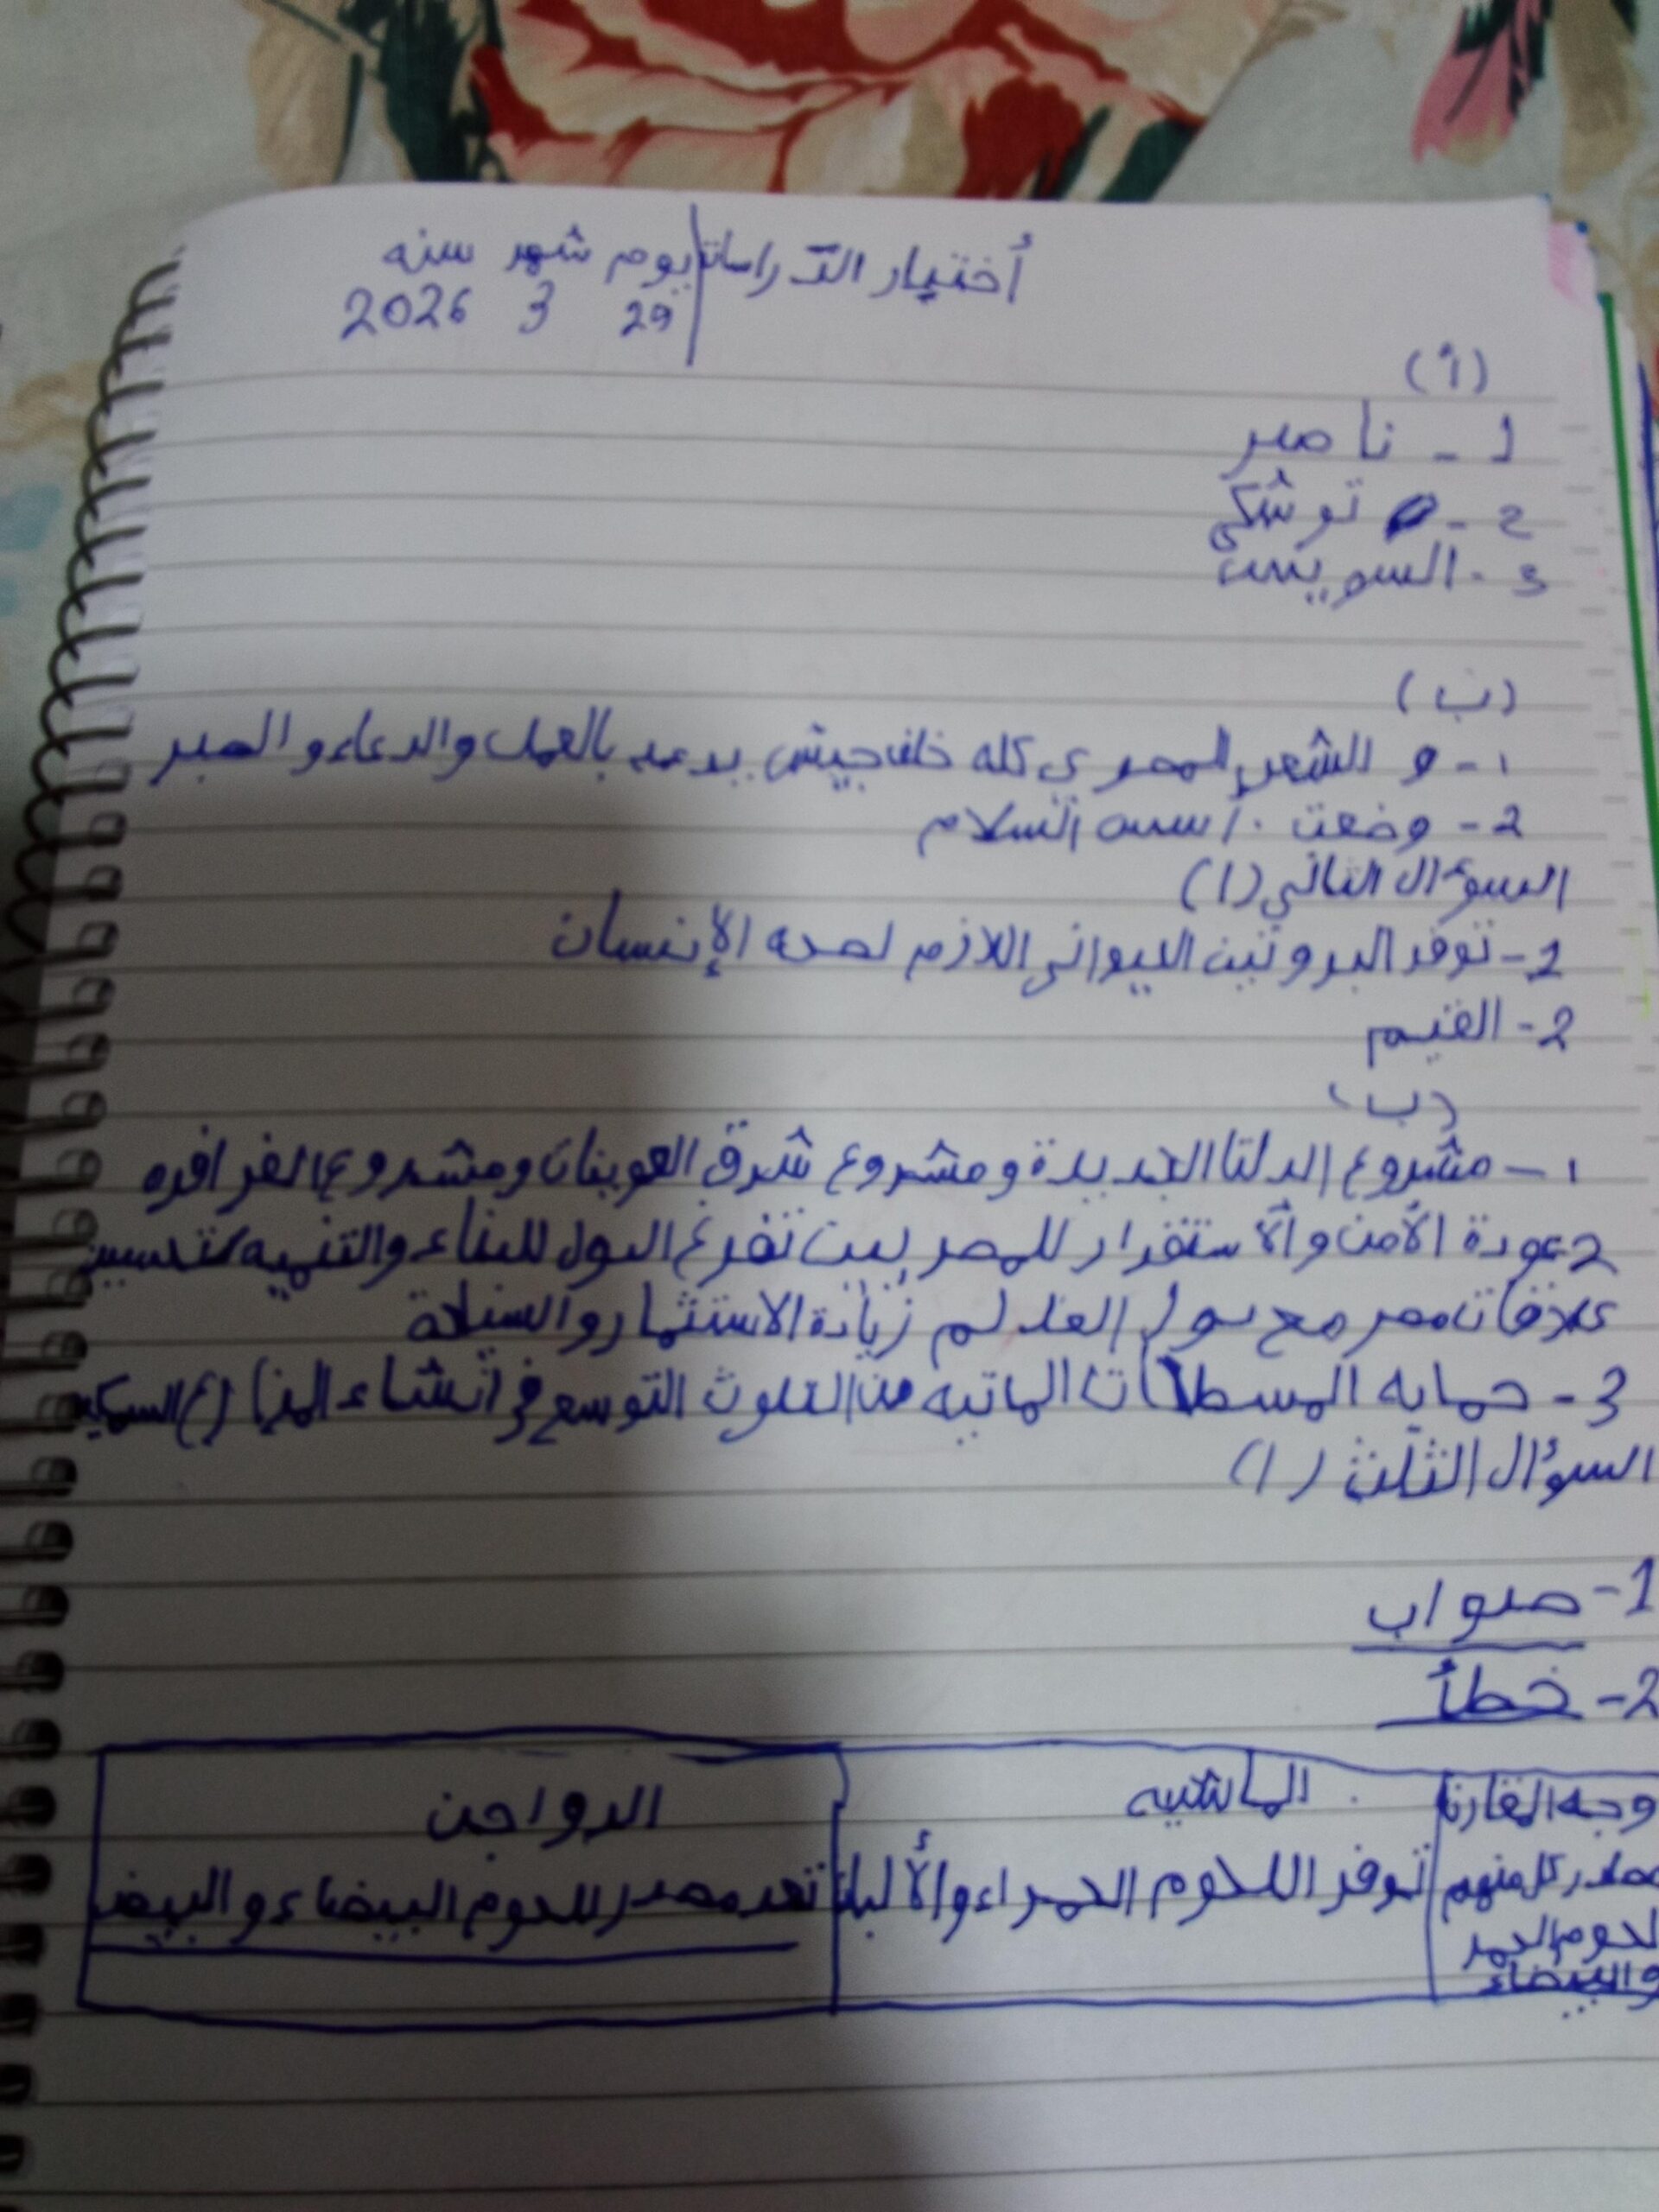 أختيار الدراسات يوم شهر سنه
29 3 2026
(أ)
1 - ناصر
2 - توشكى
3 - السويس
(ب)
1 - و الشعب المصري كله خلف جيش يدعمه بالعمل والدعاء والصبر
2 - وضعت أسس السلام
السوءال الثاني (ا)
1 - توفر البروتين الحيواني اللازم لصحه الإنسان
2 - القيم
(ب)
1 - مشروع الدلتا الجديدة ومشروع شرق العوينات ومشروع الفرافره
2 عودة الأمن والأستقرار للمصر تفرغ الدول للبناء والتنميه تحسين
علاقات مصر مع دول العالم زيادة الاستثمار والسياحة
3 - حمايه المسطحات المائيه من التلوث التوسع في أنشاء المزارع السمكيه
السوؤال الثالث (ا)
1 - صواب
2 - خطأ
وجه المقارنا الماشيه الدواجن
مصادر كل منهم توفر اللحوم الحمراء والألبان تعد مصدر للحوم البيضاء و البيض
لحوم الحمر
والبيضاء